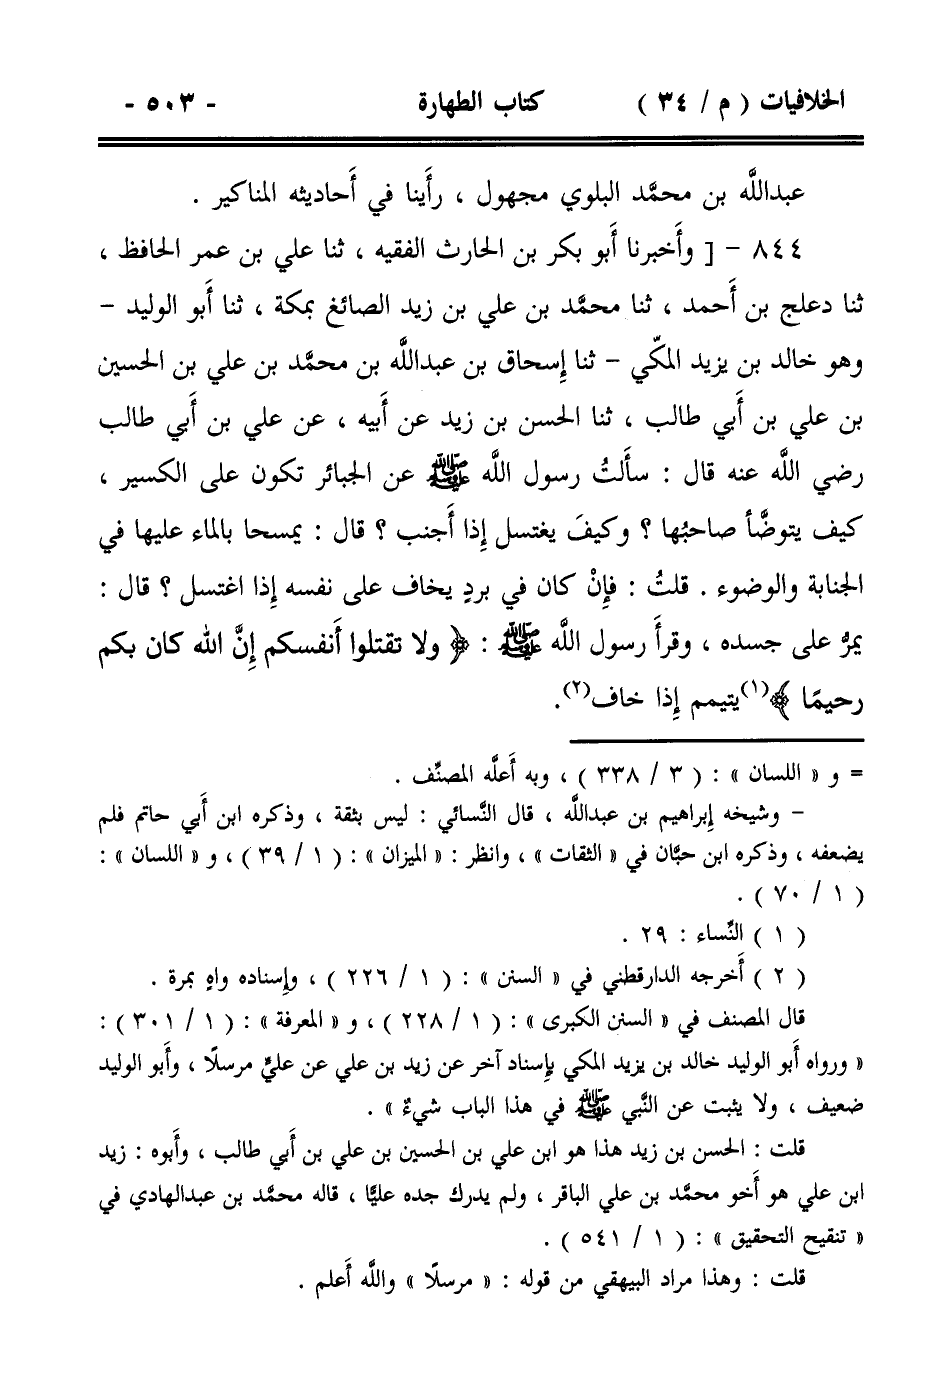 الخلافيات ( م / ٣٤ ) كتاب الطهارة - ٥٠٣ -
عبداللَّه بن محمَّد البلوي مجهول ، رأَينا في أَحاديثه المناكير .
٨٤٤ - [ وأَخبرنا أَبو بكر بن الحارث الفقيه ، ثنا علي بن عمر الحافظ ،
ثنا دعلج بن أَحمد ، ثنا محمَّد بن علي بن زيد الصائغ بمكة ، ثنا أَبو الوليد -
وهو خالد بن يزيد المكّي - ثنا إِسحاق بن عبداللَّه بن محمَّد بن علي بن الحسين
بن علي بن أَبي طالب ، ثنا الحسن بن زيد عن أَبيه ، عن علي بن أَبي طالب
رضي اللَّه عنه قال : سأَلتُ رسول اللَّه ﷺ عن الجبائر تكون على الكسير ،
كيف يتوضَّأ صاحبُها ؟ وكيفَ يغتسل إِذا أَجنب ؟ قال : يمسحا بالماء عليها في
الجنابة والوضوء . قلتُ : فإِنْ كان في بردٍ يخاف على نفسه إِذا اغتسل ؟ قال :
يمرُّ على جسده ، وقرأَ رسول اللَّه ﷺ : ﴿ ولا تقتلوا أَنفسكم إِنَّ الله كان بكم
رحيمًا ﴾(١)يتيمم إِذا خاف(٢).
= و « اللسان » : ( ٣ / ٣٣٨ ) ، وبه أَعلَّه المصنِّف .
- وشيخه إِبراهيم بن عبداللَّه ، قال النَّسائي : ليس بثقة ، وذكره ابن أَبي حاتم فلم
يضعفه ، وذكره ابن حبَّان في « الثقات » ، وانظر : « الميزان » : ( ١ / ٣٩ ) ، و « اللسان » :
( ١ / ٧٠ ) .
( ١ ) النِّساء : ٢٩ .
( ٢ ) أَخرجه الدارقطني في « السنن » : ( ١ / ٢٢٦ ) ، وإِسناده واهٍ بمرة .
قال المصنف في « السنن الكبرى » : ( ١ / ٢٢٨ ) ، و « المعرفة » : ( ١ / ٣٠١ ) :
« ورواه أَبو الوليد خالد بن يزيد المكي بإِسناد آخر عن زيد بن علي عن عليٍّ مرسلًا ، وأَبو الوليد
ضعيف ، ولا يثبت عن النَّبي ﷺ في هذا الباب شيءٌ » .
قلت : الحسن بن زيد هذا هو ابن علي بن الحسين بن علي بن أَبي طالب ، وأَبوه : زيد
ابن علي هو أَخو محمَّد بن علي الباقر ، ولم يدرك جده عليًّا ، قاله محمَّد بن عبدالهادي في
« تنقيح التحقيق » : ( ١ / ٥٤١ ) .
قلت : وهذا مراد البيهقي من قوله : « مرسلًا » واللَّه أَعلم .